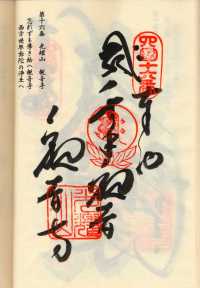 奉納
千手観音
観音寺
第十六番 光耀山 観音寺
忘れずも導き給へ観音寺
西方世界弥陀の浄土へ